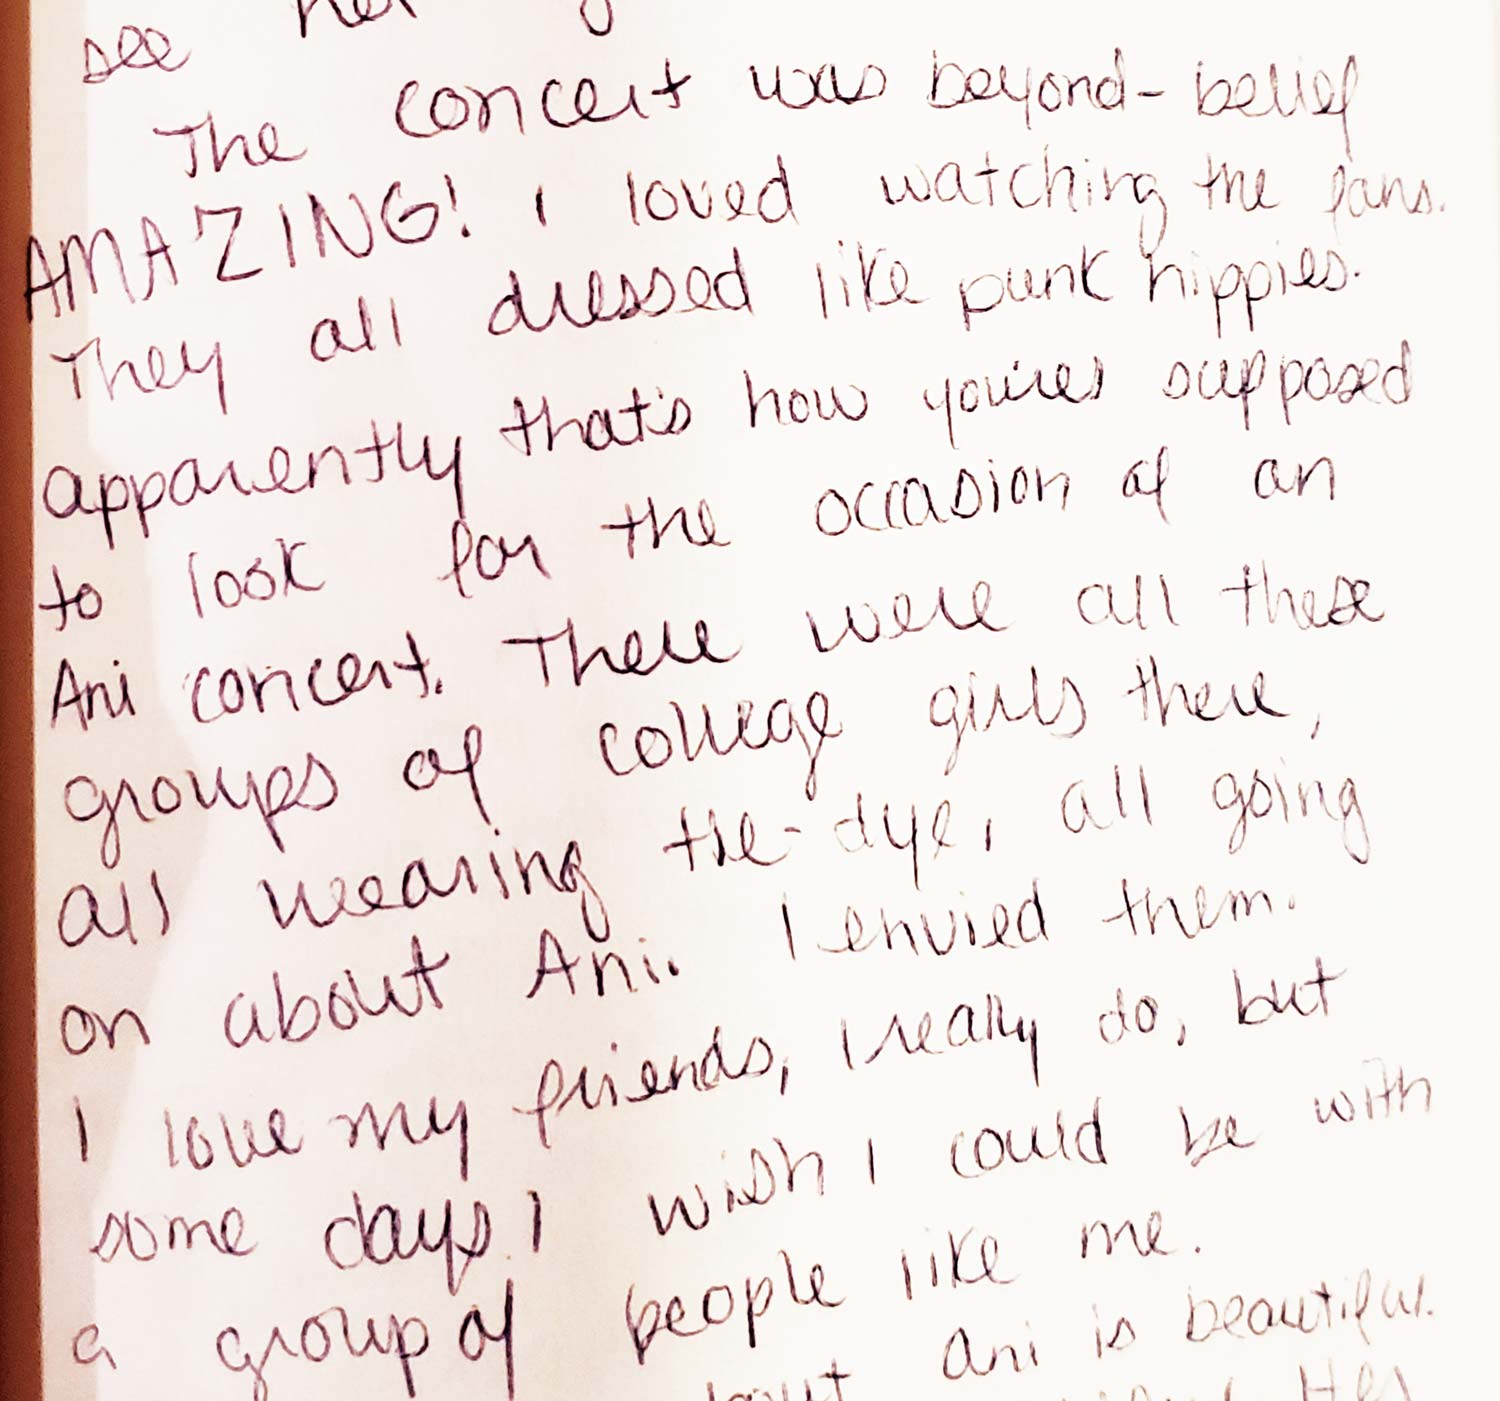 see her
The concert was beyond-belief
AMAZING! I loved watching the fans.
They all dressed like punk hippies.
apparently that's how you're supposed
to look for the occasion of an
Ani concert. There were all these
groups of college girls there,
all wearing tie-dye, all going
on about Ani. I envied them.
I love my friends, I really do, but
some days I wish I could be with
a group of people like me.
Ani is beautiful.
Her